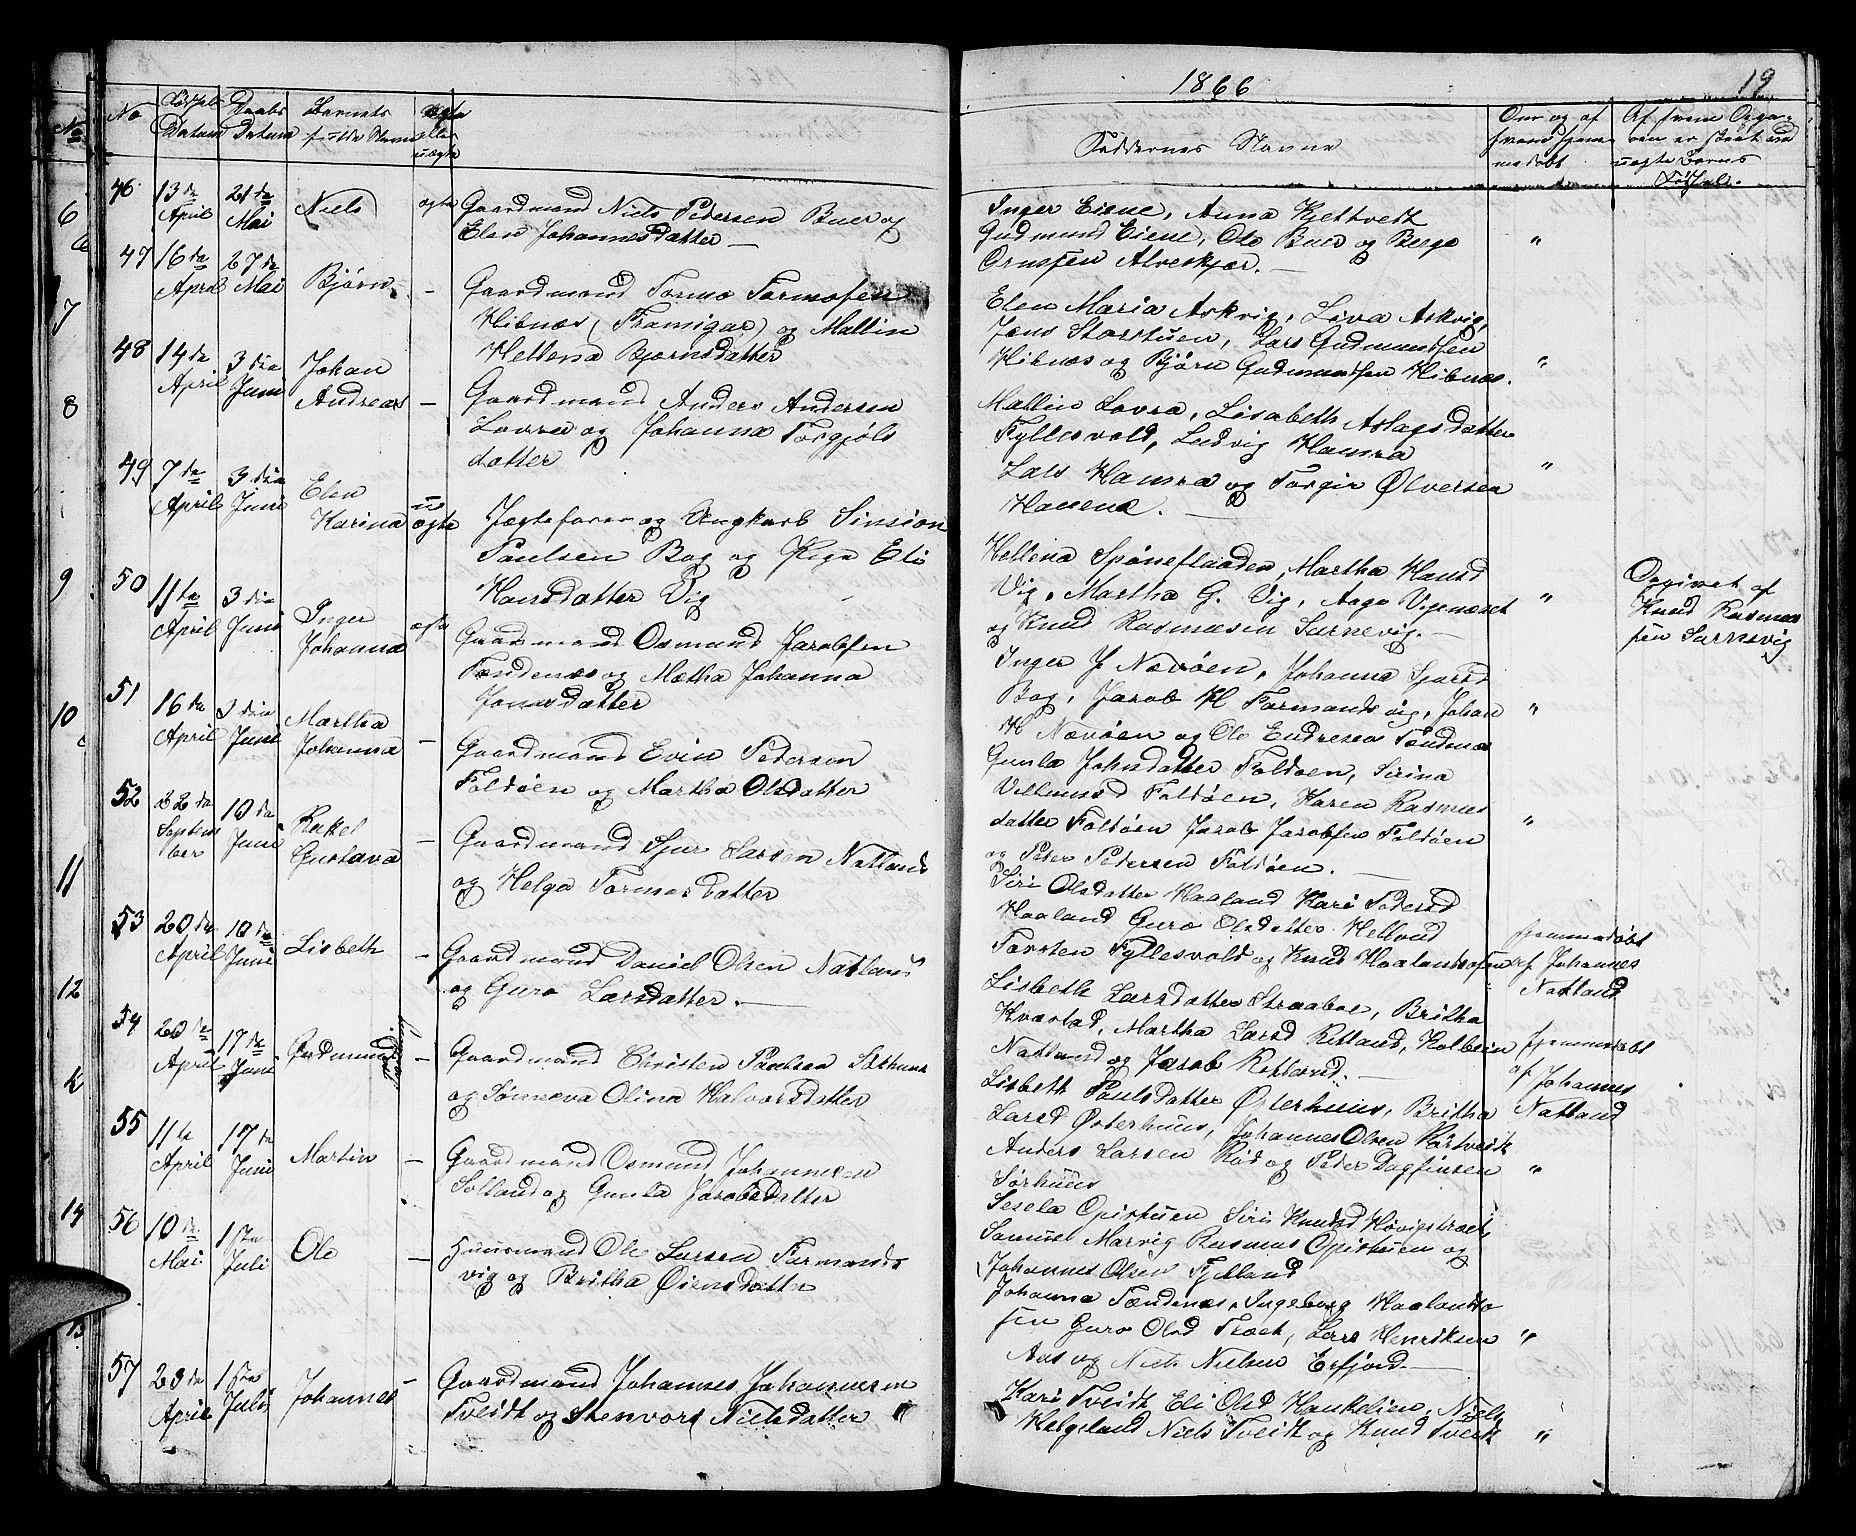 1866
19
No
Fødsels
Datum
Daabs
Datum
Barnets
fulde Navn
ægte
eller
uægte
Faddernes Navne
Af hvem Opga-
ven er skeet ved
uægte Børns
Fødsel.
46
13de
April
21de
Mai
Niels
ægte
Gaardmand Niels Pedersen Buer og
Elen Johannesdatter —
Inger Eiene, Anna Kjettvedt
Gudmund Eiene, Ole Buer og Berge
Ornsfen Alveskjær. —
"
47
16de
April
27de
Mai
Bjørn
—
Gaardmand Tormo Tormosen
Hibnæs (Framigae) og Mallin
Hellena Bjørnsdatter
Elen Maria Askvig, Lava Askvig,
Jens Storstuen, Lars Gudmundsen
Hibnæs og Bjørn Gudmundsen Hibnæs.
"
48
14de
April
3die
Juni
Johan
Andreas
—
Gaardmand Anders Andersen
Lovra og Johanna Torgjøls
datter
Mallin Lovra, Lisabeth Aslagsdatter
Fyllesvold, Ludvig Hamra
Lars Hamra og Torgir Ølversen
Hauena. —
"
49
7de
April
3die
Juni
Elen
Karina
u-
ægte
Jægtefarer og Ungkarl Simon
Paulsen Bog og Pige Eli
Hansdatter Vig
Hellena Spøneflaaden, Martha Hansd
Vig, Martha G. Vig, Aage Vigenæset
og Knud Rasmusen Sarnevig. —
"
Opgivet af
Knud Rasmu-
sen Sarnevig
50
11te
April
3die
Juni
Inger
Johanna
ægte
Gaardmand Osmund Jacobsen
Tendenæs og Mætha Johanna
Jonasdatter
Inger J Nævøen, Johanna Sjursd
Bog, Jacob H Farmandsvig, Johan
H Nævøen og Ole Endresen Tendenæs
"
51
16de
April
3die
Juni
Martha
Johanna
—
Gaardmand Evin Pedersen
Foldøen og Martha Olsdatter
Gunla Johnsdatter Foldøen, Serina
Villumsd Foldøen, Karen Rasmus
datter Foldøen Jacob Jacobsen Foldøen
og Peder Pedersen Foldøen. —
"
52
22de
Septem
ber
10de
Juni
Rakel
Gustava
—
Gaardmand Sjur Larsen Natland
og Helga Tormosdatter
Siri Olsdatter Haaland Kari Pedersd
Haaland Guro Olsdatter Helland
Torsten Fyllesvold og Knud Haalandsosen
Hjemmedøbt
af Johannes
Natland
53
20de
April
10de
Juni
Lisbeth
—
Gaardmand Daniel Olsen Natland
og Guro Larsdatter. —
Lisbeth Larsdatter Straaboe, Britha
Kvæstad, Martha Larsd Ritland, Kolbein
Natland og Jacob Ritland. —
hjemmedøbt
af Johannes
Natland
54
20de
April
17de
Juni
Gudmund
—
Gaardmand Christen Paulsen Sæthuus
og Sønneva Olina Halvorsdatter
Lisbeth Paulsdatter Østerhuus, Britha
Larsd Østerhuus, Johannes Olsen Kaltveit
Anders Larsen Rød og Peder Dagfinsen
Sørhuus
"
55
11te
April
17de
Juni
Martin
—
Gaardmand Osmund Johannesen
Solland og Gunla Jacobsdatter
Sesela Opistuen Siri Knudsd Høvigstræet
Samuel Marvig Rasmus Opistuen og
Johannes Olsen Fjelland
56
10de
Mai
1ste
Juli
Ole
—
Huusmand Ole Larsen Farmands
vig og Britha Øiensdatter
Johanna Tendenæs, Ingeborg Haalands
sen Guro Olsd Træet, Lars Henriksen
Aas og Niels Nielsen Erfjord. —
"
57
23de
April
1ste
Juli
Johannes
—
Gaardmand Johannes Johannesen
Tveidt og Stenvor Nielsdatter
Kari Tveidt Eli Olsd Hankelien, Niels
Helgeland Niels Tveidt og Knud Tveidt
"
6
7
8
9
10
11
12
14